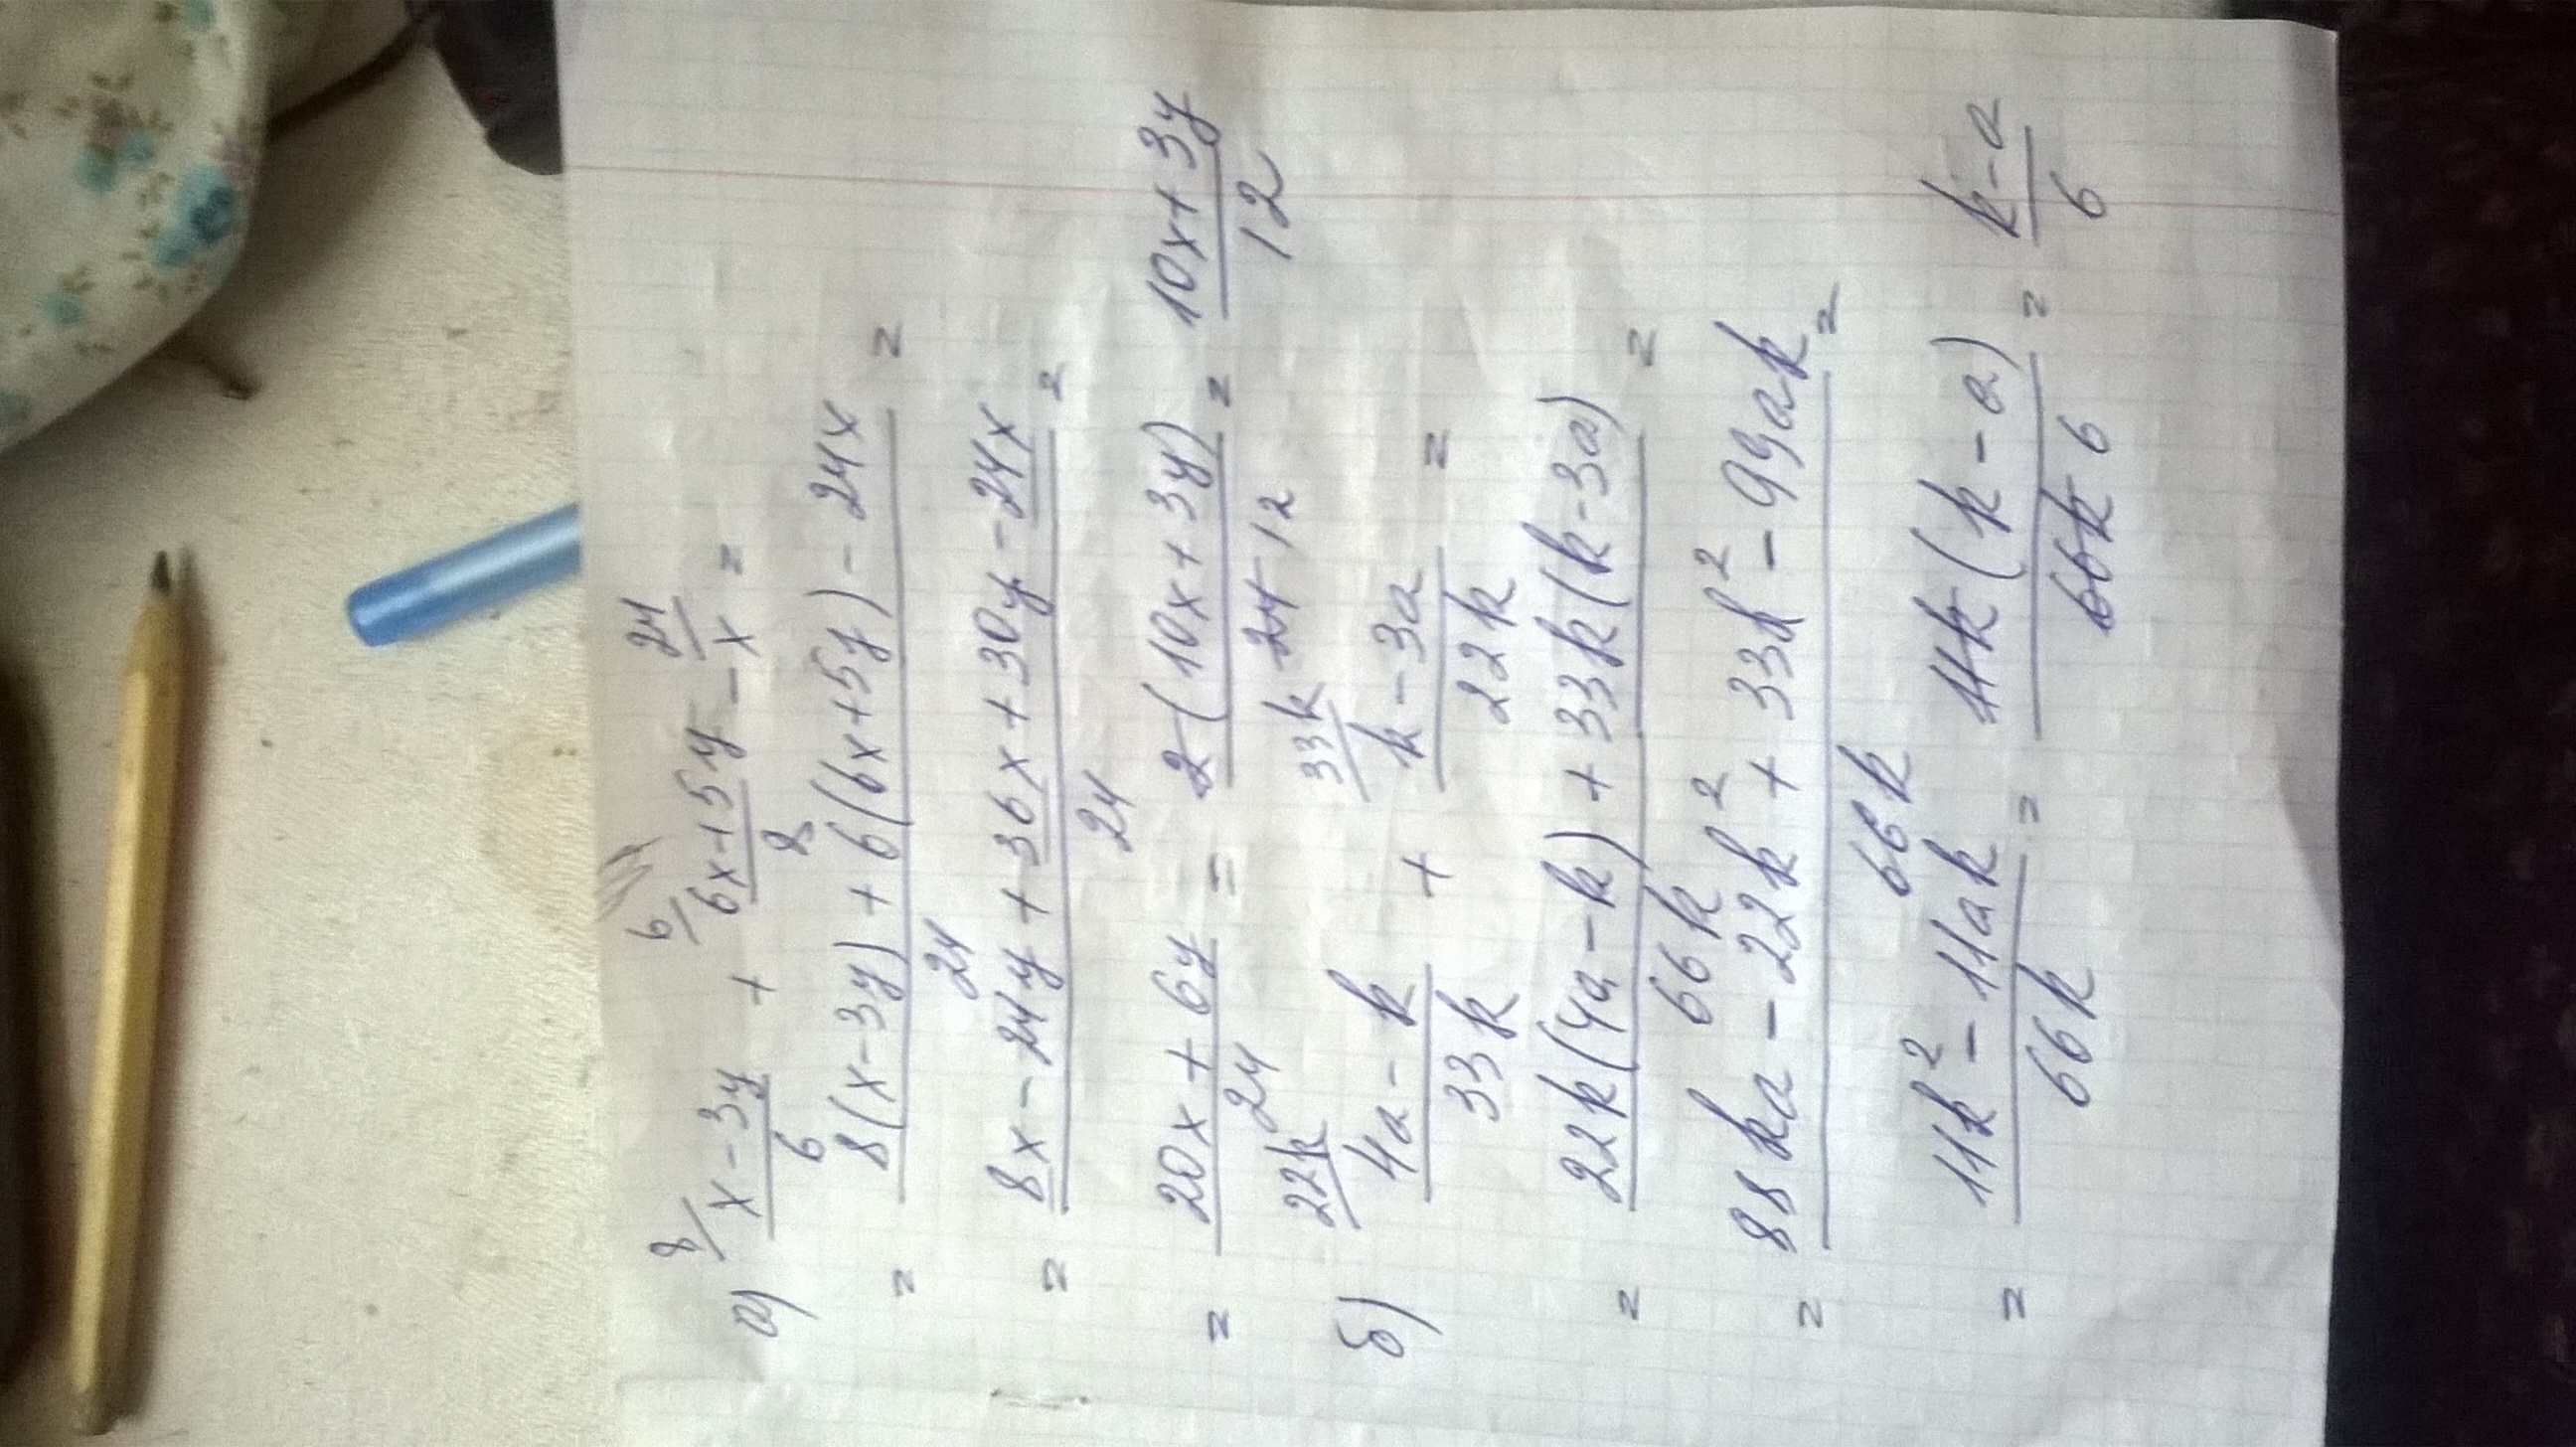 а) 8/ (x-3y)/6 + 6/ (6x+5y)/8 - 24/ x =
= (8(x-3y) + 6(6x+5y) - 24x)/24 =
= (8x - 24y + 36x + 30y - 24x)/24 =
= (20x + 6y)/24 = 2(10x + 3y)/24 12 = (10x + 3y)/12
б) 22k/ (4a - k)/33k + 33k/ (k - 3a)/22k =
= (22k(4a - k) + 33k(k - 3a))/66k =
= (88ka - 22k² + 33k² - 99ak)/66k =
= (11k² - 11ak)/66k = 11k(k - a)/66k 6 = (k - a)/6